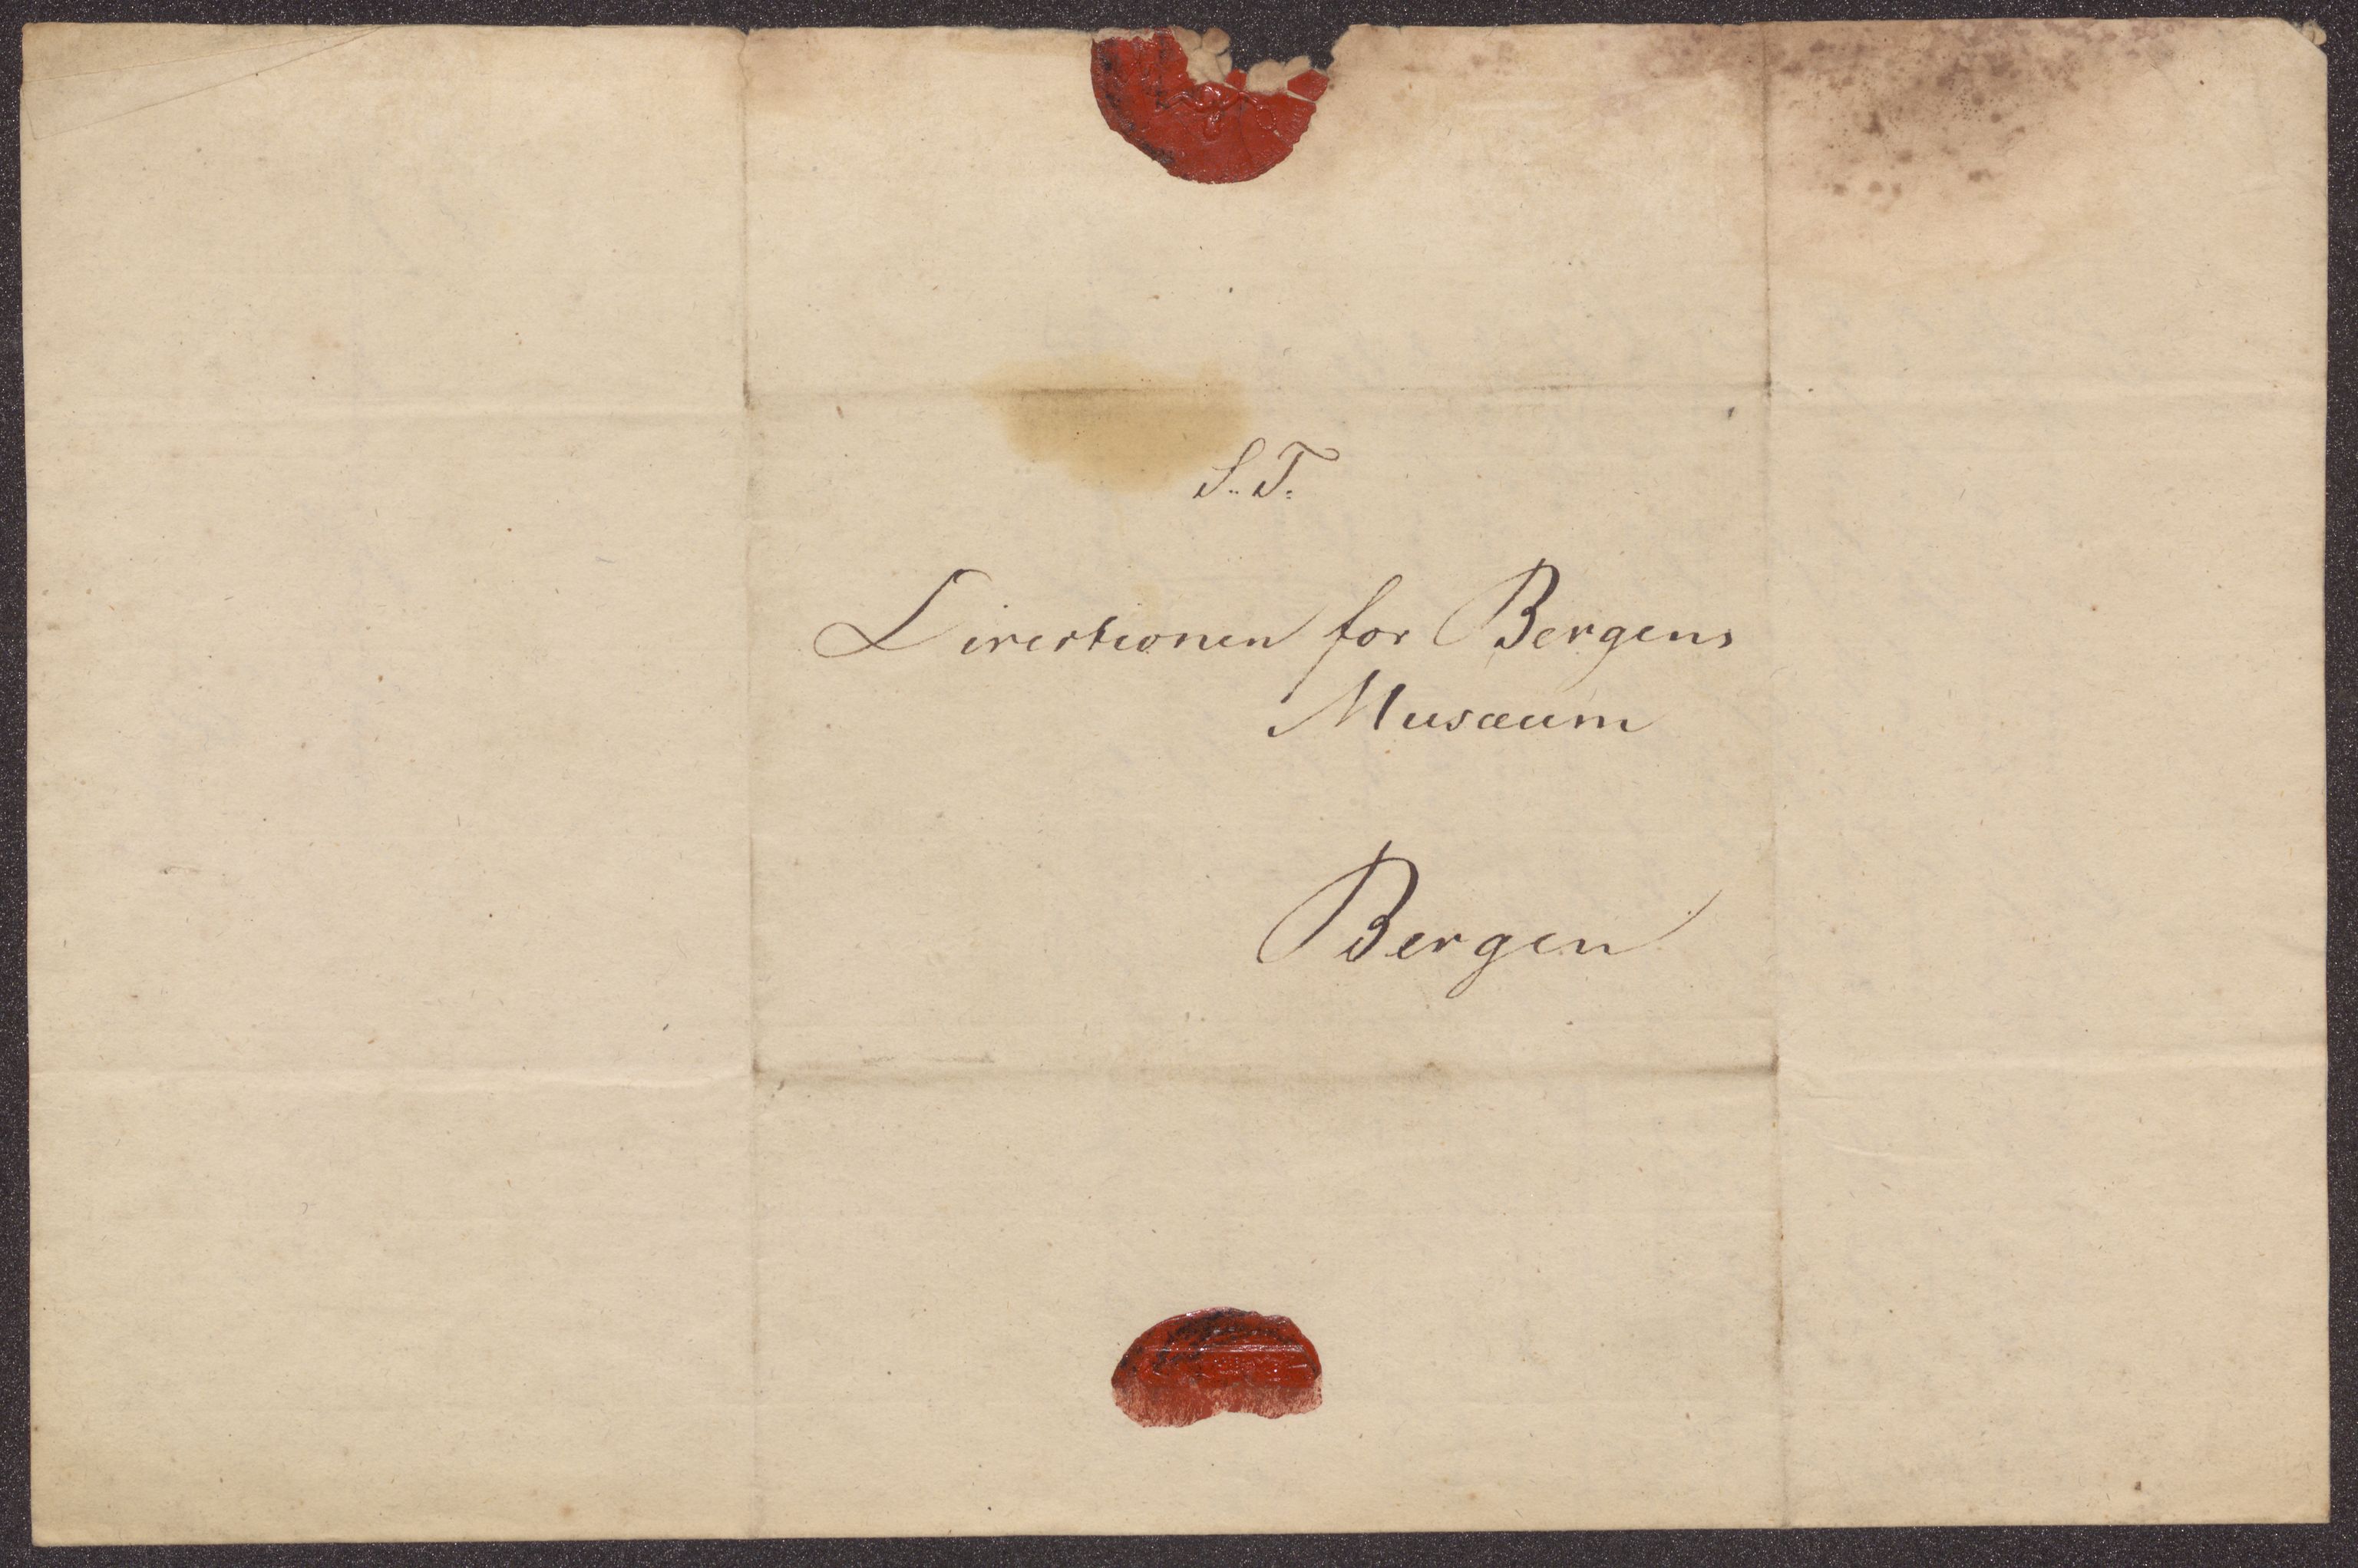 S. T.
Directionen for Bergens
Musæum
Bergen